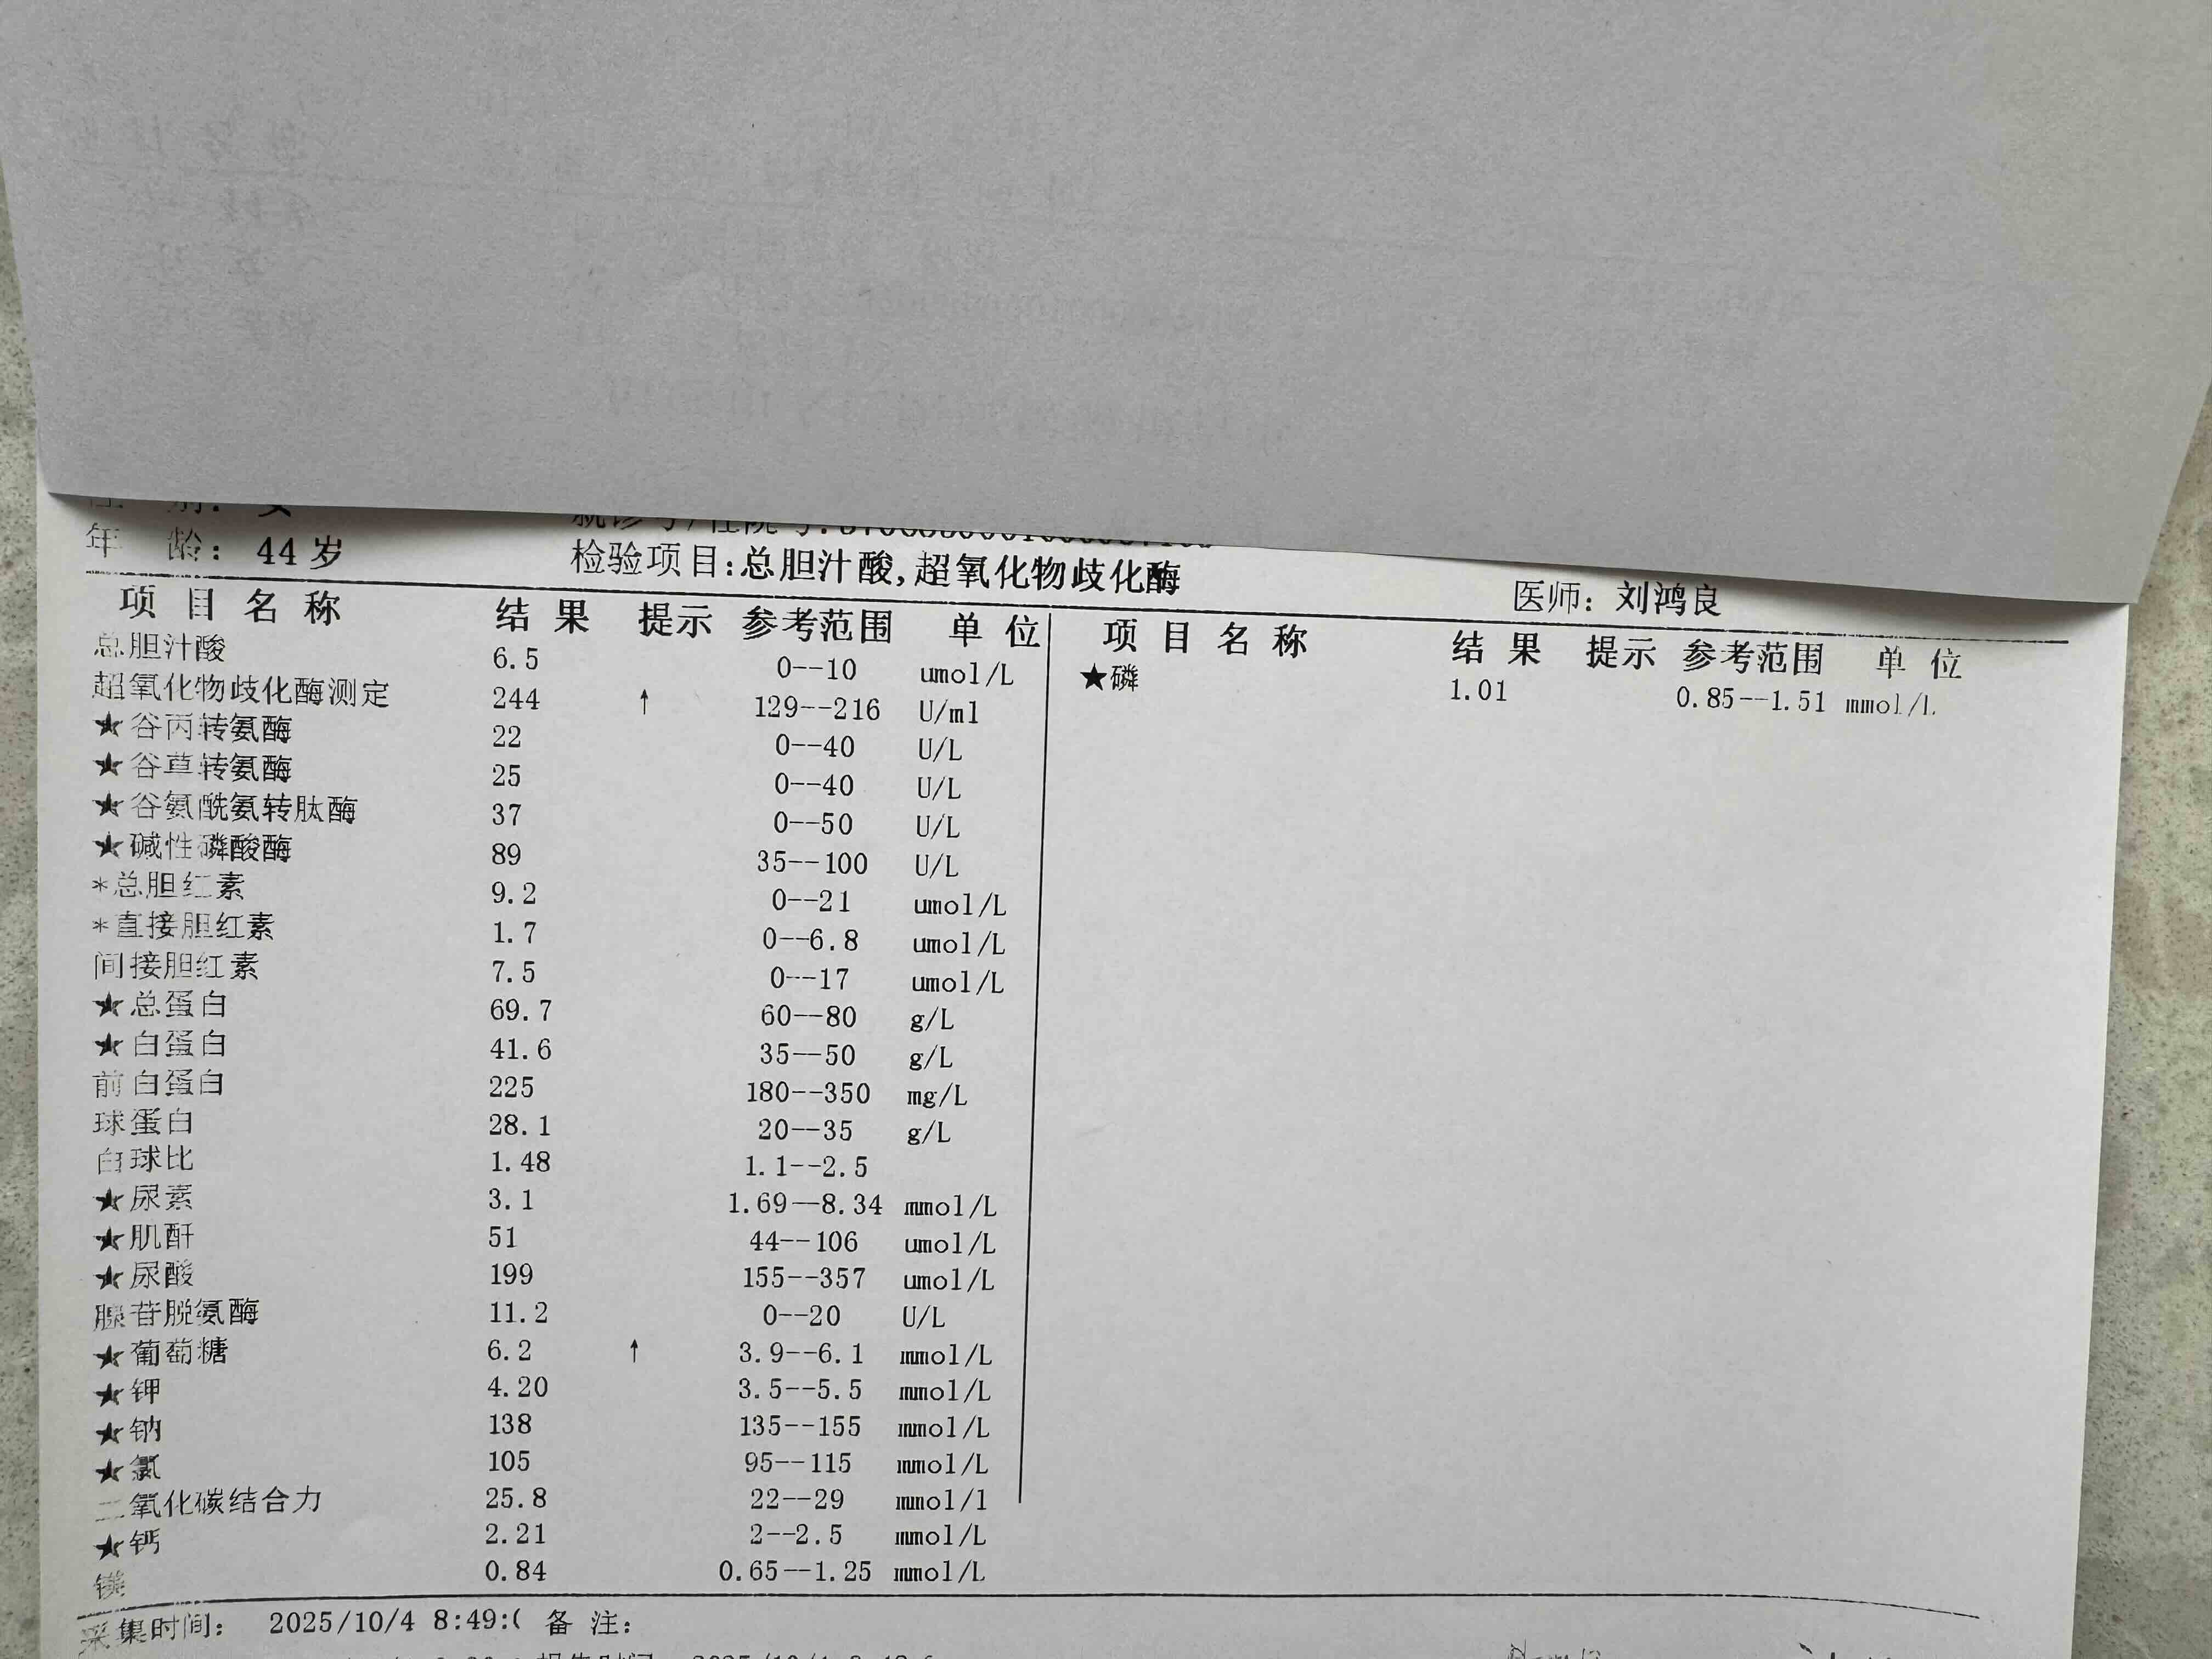 年 龄: 44岁 检验项目:总胆汁酸,超氧化物歧化酶 医师: 刘鸿良
项 目 名 称 结 果 提示 参考范围 单 位 项 目 名 称 结 果 提示 参考范围 单 位
总胆汁酸 6.5 0--10 umol/L ★磷 1.01 0.85--1.51 mmol/L
超氧化物歧化酶测定 244 ↑ 129--216 U/ml
★谷丙转氨酶 22 0--40 U/L
★谷草转氨酶 25 0--40 U/L
★谷氨酰氨转肽酶 37 0--50 U/L
★碱性磷酸酶 89 35--100 U/L
*总胆红素 9.2 0--21 umol/L
*直接胆红素 1.7 0--6.8 umol/L
间接胆红素 7.5 0--17 umol/L
★总蛋白 69.7 60--80 g/L
★白蛋白 41.6 35--50 g/L
前白蛋白 225 180--350 mg/L
球蛋白 28.1 20--35 g/L
白球比 1.48 1.1--2.5
★尿素 3.1 1.69--8.34 mmol/L
★肌酐 51 44--106 umol/L
★尿酸 199 155--357 umol/L
腺苷脱氨酶 11.2 0--20 U/L
★葡萄糖 6.2 ↑ 3.9--6.1 mmol/L
★钾 4.20 3.5--5.5 mmol/L
★钠 138 135--155 mmol/L
★氯 105 95--115 mmol/L
二氧化碳结合力 25.8 22--29 mmol/l
★钙 2.21 2--2.5 mmol/L
镁 0.84 0.65--1.25 mmol/L
采集时间: 2025/10/4 8:49:( 备 注: